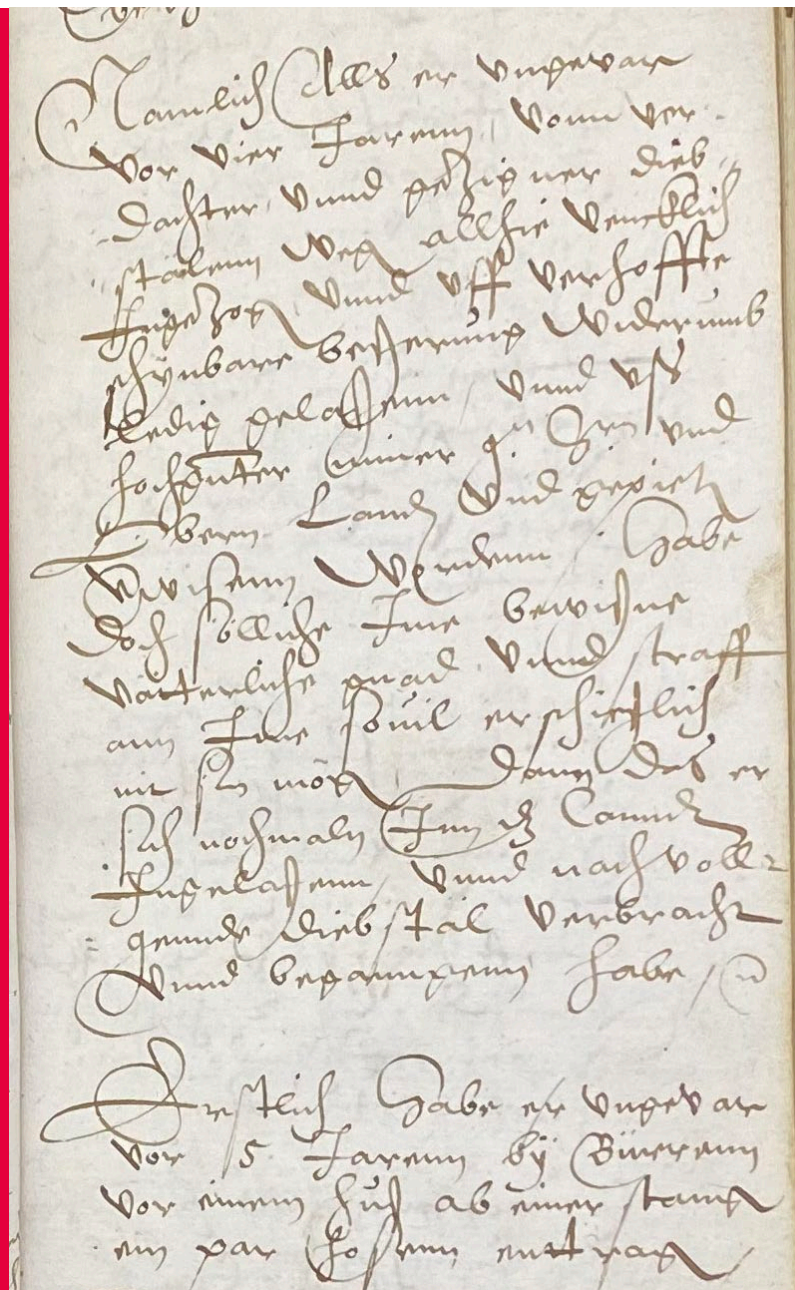 Namlich Alls er ungevar
vor vier Jarenn, vonn ver-
dachter unnd gezigner dieb-
stälenn weg allhie vencklich
Ingezog unnd uff verhoffte
schynbare beßerung widerumb
ledig gelaßenn, unnd uß
hochgnter miner g. Hrn und
Obern Landt und gepiet
verwisenn wordenn, Habe
doch sölliche Ime bewißne
vätterliche gnad unnd straff
ann Ime sovil erschießlich
nit sin mög, Dann das er
sich nochmaln Inn dz Lanndt
Ingelaßenn, unnd nachvoll-
gennde diebstäl verbracht
Unnd beganngenn habe,
Erstlich Habe er ungevar
vor 5 Jarenn by Büerenn
vor einem huß ab einer stang
ein par hosenn enttrag